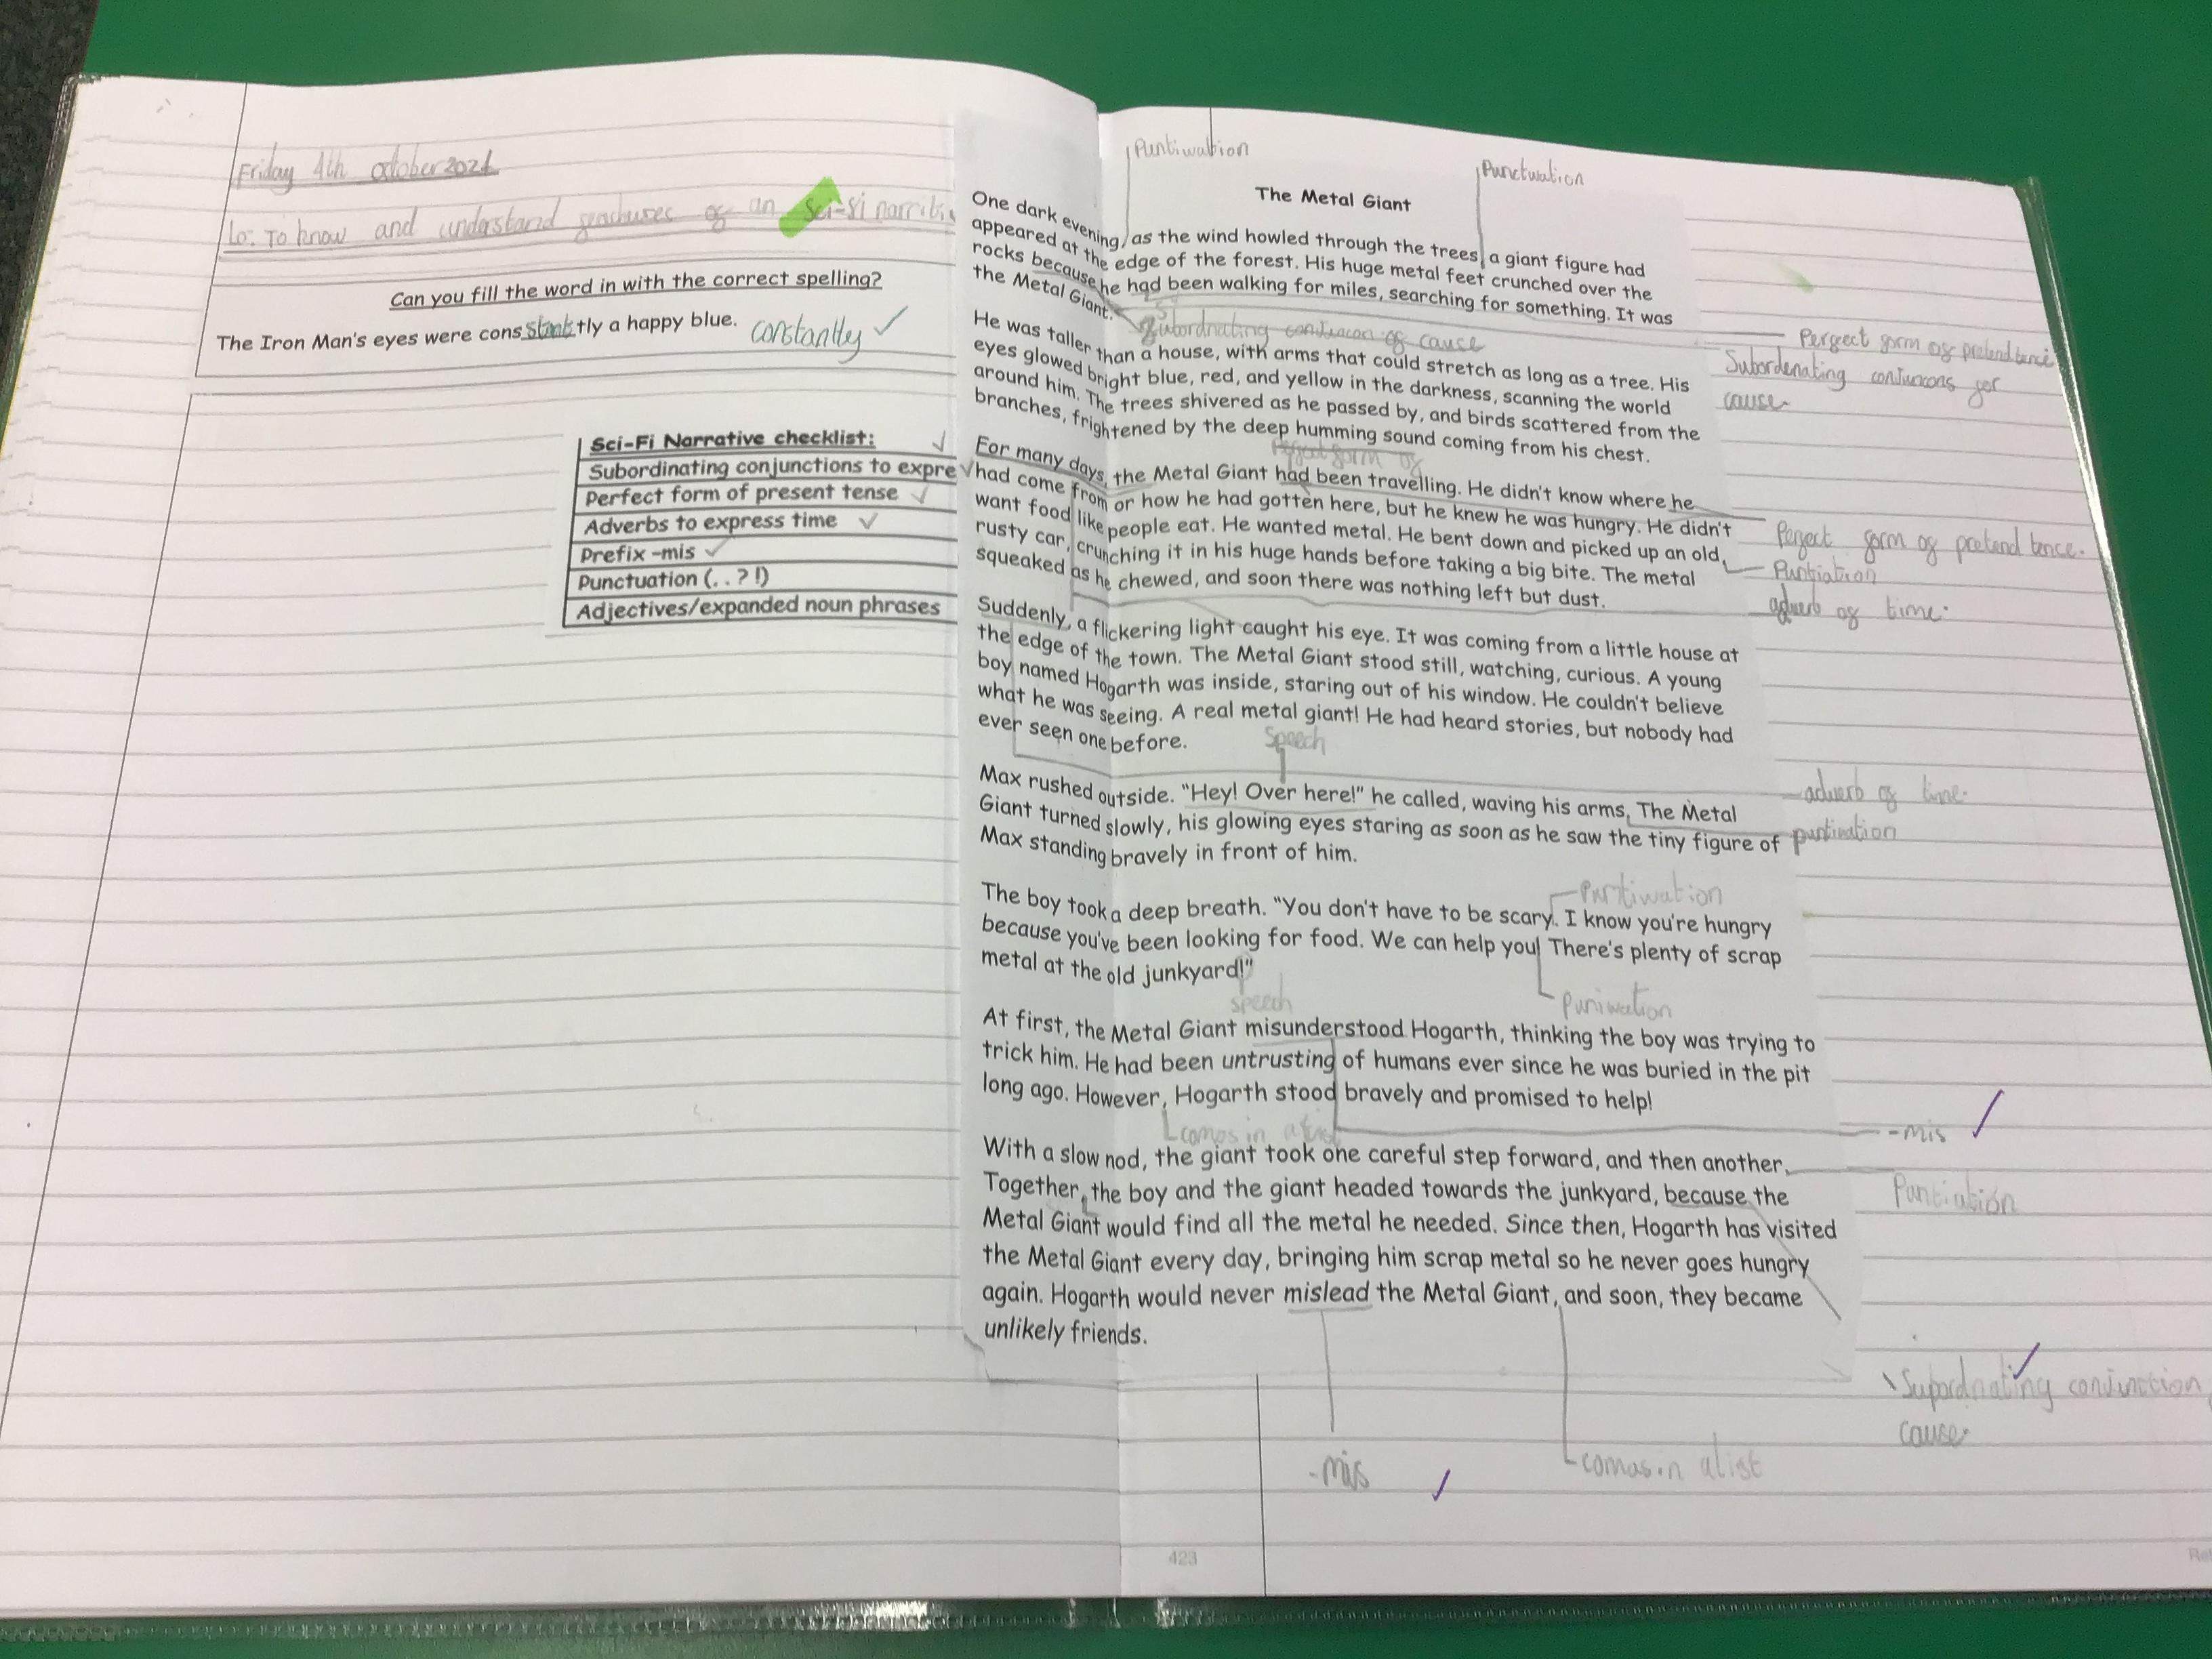 Friday 4th october 2024
Lo: To know and understand of an sci-fi
Can you fill the word in with the correct spelling?
The Iron Man's eyes were cons tly a happy blue. constantly ✓
Sci-Fi Narrative checklist:
Subordinating conjunctions to expre ✓
Perfect form of present tense ✓
Adverbs to express time ✓
Prefix -mis ✓
Punctuation (. . ? !)
Adjectives/expanded noun phrases
Puntiwation
Punctuation
The Metal Giant
One dark evening, as the wind howled through the trees, a giant figure had
appeared at the edge of the forest. His huge metal feet crunched over the
rocks because he had been walking for miles, searching for something. It was
the Metal Giant.
Subordnating of cause
Pergect gorm og pretend tence
He was taller than a house, with arms that could stretch as long as a tree. His
eyes glowed bright blue, red, and yellow in the darkness, scanning the world
around him. The trees shivered as he passed by, and birds scattered from the
branches, frightened by the deep humming sound coming from his chest.
Subordenating
cause.
Pergect gorm og
For many days, the Metal Giant had been travelling. He didn't know where he
had come from or how he had gotten here, but he knew he was hungry. He didn't
want food like people eat. He wanted metal. He bent down and picked up an old,
rusty car, crunching it in his huge hands before taking a big bite. The metal
squeaked as he chewed, and soon there was nothing left but dust.
Pergect gorm og pretend tence.
Puntiation
adverb og time.
Suddenly, a flickering light caught his eye. It was coming from a little house at
the edge of the town. The Metal Giant stood still, watching, curious. A young
boy named Hogarth was inside, staring out of his window. He couldn't believe
what he was seeing. A real metal giant! He had heard stories, but nobody had
ever seen one before.
Speech
Max rushed outside. "Hey! Over here!" he called, waving his arms. The Metal
Giant turned slowly, his glowing eyes staring as soon as he saw the tiny figure of
Max standing bravely in front of him.
adverb og time.
puntination
Puntiwation
The boy took a deep breath. "You don't have to be scary. I know you're hungry
because you've been looking for food. We can help you! There's plenty of scrap
metal at the old junkyard!"
speech
Puniwation
At first, the Metal Giant misunderstood Hogarth, thinking the boy was trying to
trick him. He had been untrusting of humans ever since he was buried in the pit
long ago. However, Hogarth stood bravely and promised to help!
comas in a list
-mis ✓
With a slow nod, the giant took one careful step forward, and then another.
Together, the boy and the giant headed towards the junkyard, because the
Metal Giant would find all the metal he needed. Since then, Hogarth has visited
the Metal Giant every day, bringing him scrap metal so he never goes hungry
again. Hogarth would never mislead the Metal Giant, and soon, they became
unlikely friends.
Puntiation
Subordnating conjunction
cause.
-mis ✓
comas in a list
423